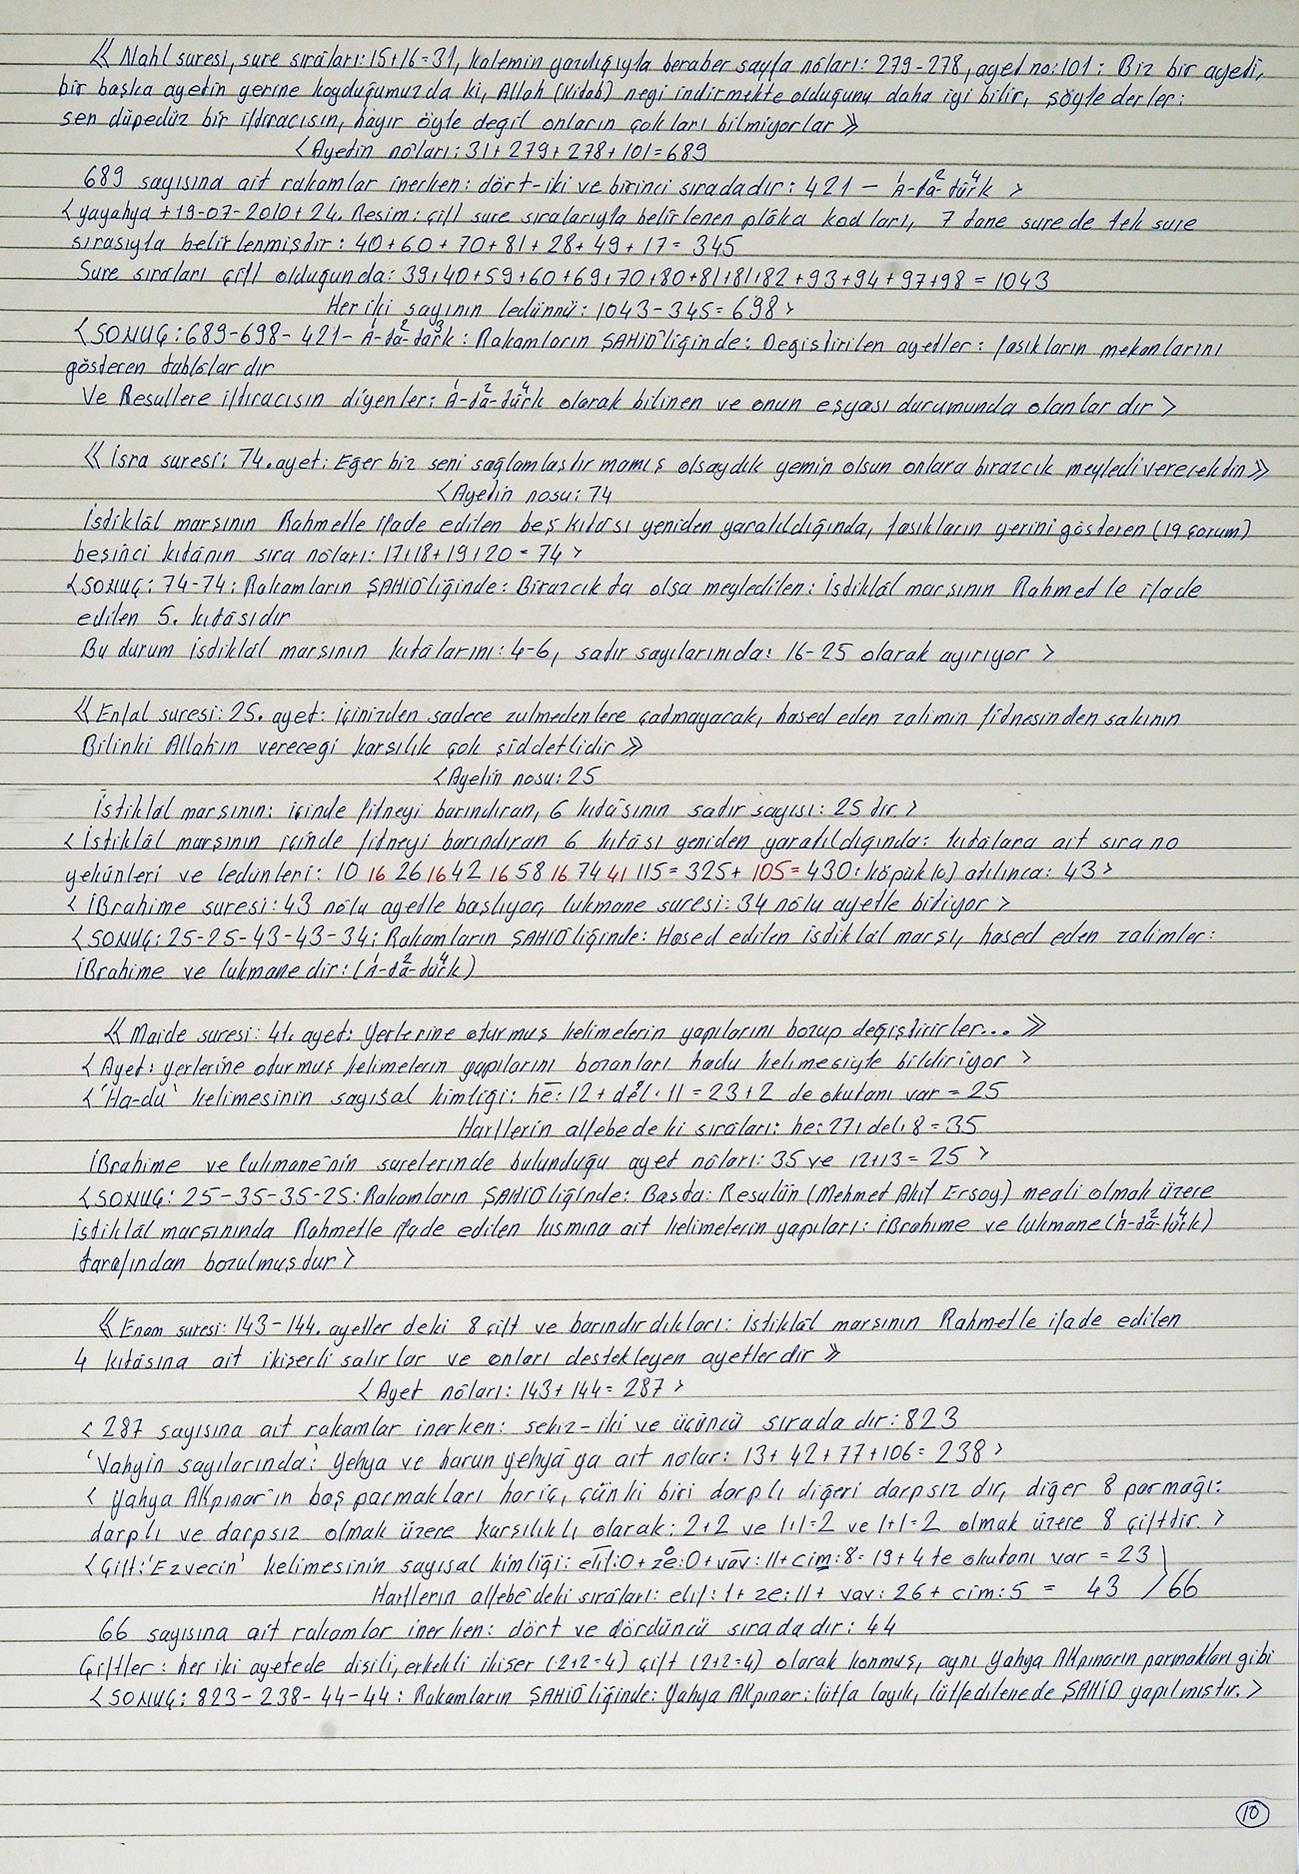 ≪ Nahl suresi, sure sıraları: 15+16=31, kalemin yazdığıyla beraber sayfa nôları: 279-278, ayet no: 101: Biz bir ayeti,
bir başka ayetin yerine koyduğumuzda ki, Allah (kitab) neyi indirmekte olduğunu daha iyi bilir, şöyle derler:
sen düpedüz bir iftiracısın, hayır öyle degil onların çokları bilmiyorlar ≫
< Ayetin nôları: 31+279+278+101=689
689 sayısına ait rakamlar inerken: dört-iki ve birinci sıradadır: 421 - A¹-ta²-türk⁴ >
< yayahya +19-07-2010+24. Resim: çift sure sıralarıyla belirlenen plâka kodları, 7 tane surede tek sure
sırasıyla belirlenmişdir: 40+60+70+81+28+49+17= 345
Sure sıraları çift olduğunda: 39+40+59+60+69+70+80+81+81+82+93+94+97+98 = 1043
Her iki sayının ledünnü: 1043-345=698 >
< SONUÇ: 689-698-421- A¹-ta²-türk³: Rakamların ŞAHİD'liğinde: Değiştirilen ayetler: fasıkların mekanlarını
gösteren tablolardır
Ve Resullere iftiracısın diyenler: A¹-ta²-türk⁴ olarak bilinen ve onun eşyası durumunda olanlardır >
≪ İsra suresi: 74. ayet: Eğer biz seni sağlamlaştırmamış olsaydık yemin olsun onlara birazcık meyledi verecektin ≫
< Ayetin nosu: 74
İstiklâl marşının Rahmetle ifade edilen beş kıtası yeniden yaratıldığında, fasıkların yerini gösteren (19 çorum)
beşinci kıtânın sıra nôları: 17+18+19+20=74 >
< SONUÇ: 74-74: Rakamların ŞAHİD'liğinde: Birazcıkta olsa meyledilen: İsdiklâl marşının Rahmetle ifade
edilen 5. kıtâsıdır
Bu durum İsdiklâl marşının kıtâlarını: 4-6, satır sayılarınıda: 16-25 olarak ayırıyor >
≪ Enfal suresi: 25. ayet: içinizden sadece zulmedenlere çatmayacak, hased eden zalimin fitnesinden sakının
Bilinki Allah'ın vereceği karşılık çok şiddetlidir ≫
< Ayetin nosu: 25
İstiklâl marşının: içinde fitneyi barındıran, 6 kıtâsının satır sayısı: 25 tir >
< İstiklâl marşının içinde fitneyi barındıran 6 kıtâsı yeniden yaratıldığında: kıtâlara ait sıra no
yekünleri ve ledünleri: 10 16 26 16 42 16 58 16 74 41 115= 325+ 105= 430: köpük (o) atılınca: 43 >
< İBrahime suresi: 43 nôlu ayetle başlıyor, lukmane suresi: 34 nôlu ayetle bitiyor >
< SONUÇ: 25-25-43-43-34: Rakamların ŞAHİD'liğinde: Hased edilen isdiklâl marşı, hased eden zalimler:
İBrahime ve lukmanedir: (A¹-ta²-türk⁴)
≪ Maide suresi: 41. ayet: Yerlerine oturmuş kelimelerin yapılarını bozup değiştirirler... ≫
< Ayet: yerlerine oturmuş kelimelerin yapılarını bozanları hadu kelimesiyle bildiriyor >
< 'Ha-dü' kelimesinin sayısal kimliği: he: 12 + del: 11 = 23+2 de okutanı var = 25
Harflerin alfebedeki sıraları: he: 27+ del: 8 = 35
İBrahime ve lukmane'nin surelerinde bulunduğu ayet nôları: 35 ve 12+13= 25 >
< SONUÇ: 25-35-35-25: Rakamların ŞAHİD'liğinde: Başta: Resulün (Mehmet Akif Ersoy) meali olmak üzere
İstiklâl marşınında Rahmetle ifade edilen kısmına ait kelimelerin yapıları: İBrahime ve lukmane (A¹-ta²-türk⁴)
tarafından bozulmuşdur >
≪ Enam suresi: 143-144. ayetlerdeki 8 çift ve barındırdıkları: İstiklâl marşının Rahmetle ifade edilen
4 kıtâsına ait ikişerli satırlar ve onları destekleyen ayetlerdir ≫
< Ayet nôları: 143+144= 287 >
< 287 sayısına ait rakamlar inerken: sekiz-iki ve üçüncü sıradadır: 823
'Vahyin sayılarında': Yehya ve harun yehyâ'ya ait nolar: 13+42+77+106= 238 >
< Yahya AKpınar'ın baş parmakları hariç, çünki biri darplı diğeri darpsızdır, diğer 8 parmağı:
darplı ve darpsız olmak üzere karşılıklı olarak: 2+2 ve 1+1=2 ve 1+1=2 olmak üzere 8 çiftdir. >
< Çift: 'Ezvecin' kelimesinin sayısal kimliği: elif: 0 + ze: 0 + vav: 11 + cim: 8 = 19+4 te okutanı var = 23
Harflerin alfebe'deki sıraları: elif: 1+ ze: 11+ vav: 26 + cim: 5 = 43 ) 66
66 sayısına ait rakamlar inerken: dört ve dördüncü sıradadır: 44
Çiftler: her iki ayetede dişili, erkekli ikişer (2+2=4) çift (2+2=4) olarak konmuş, aynı Yahya AKpınarın parmakları gibi
< SONUÇ: 823-238-44-44: Rakamların ŞAHİD'liğinde: Yahya AKpınar: lütfa layık, lütfedilenede ŞAHİD yapılmıştır. >
10